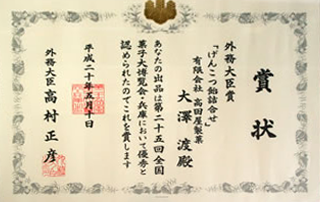 賞状
外務大臣賞
「げんこつ飴詰合せ」
有限会社 高田屋製菓
大澤 渡殿
あなたの出品は第二十五回全国
菓子大博覧会・兵庫において優秀と
認められたのでこれを賞します
平成二十年五月十日
外務大臣 高村正彦